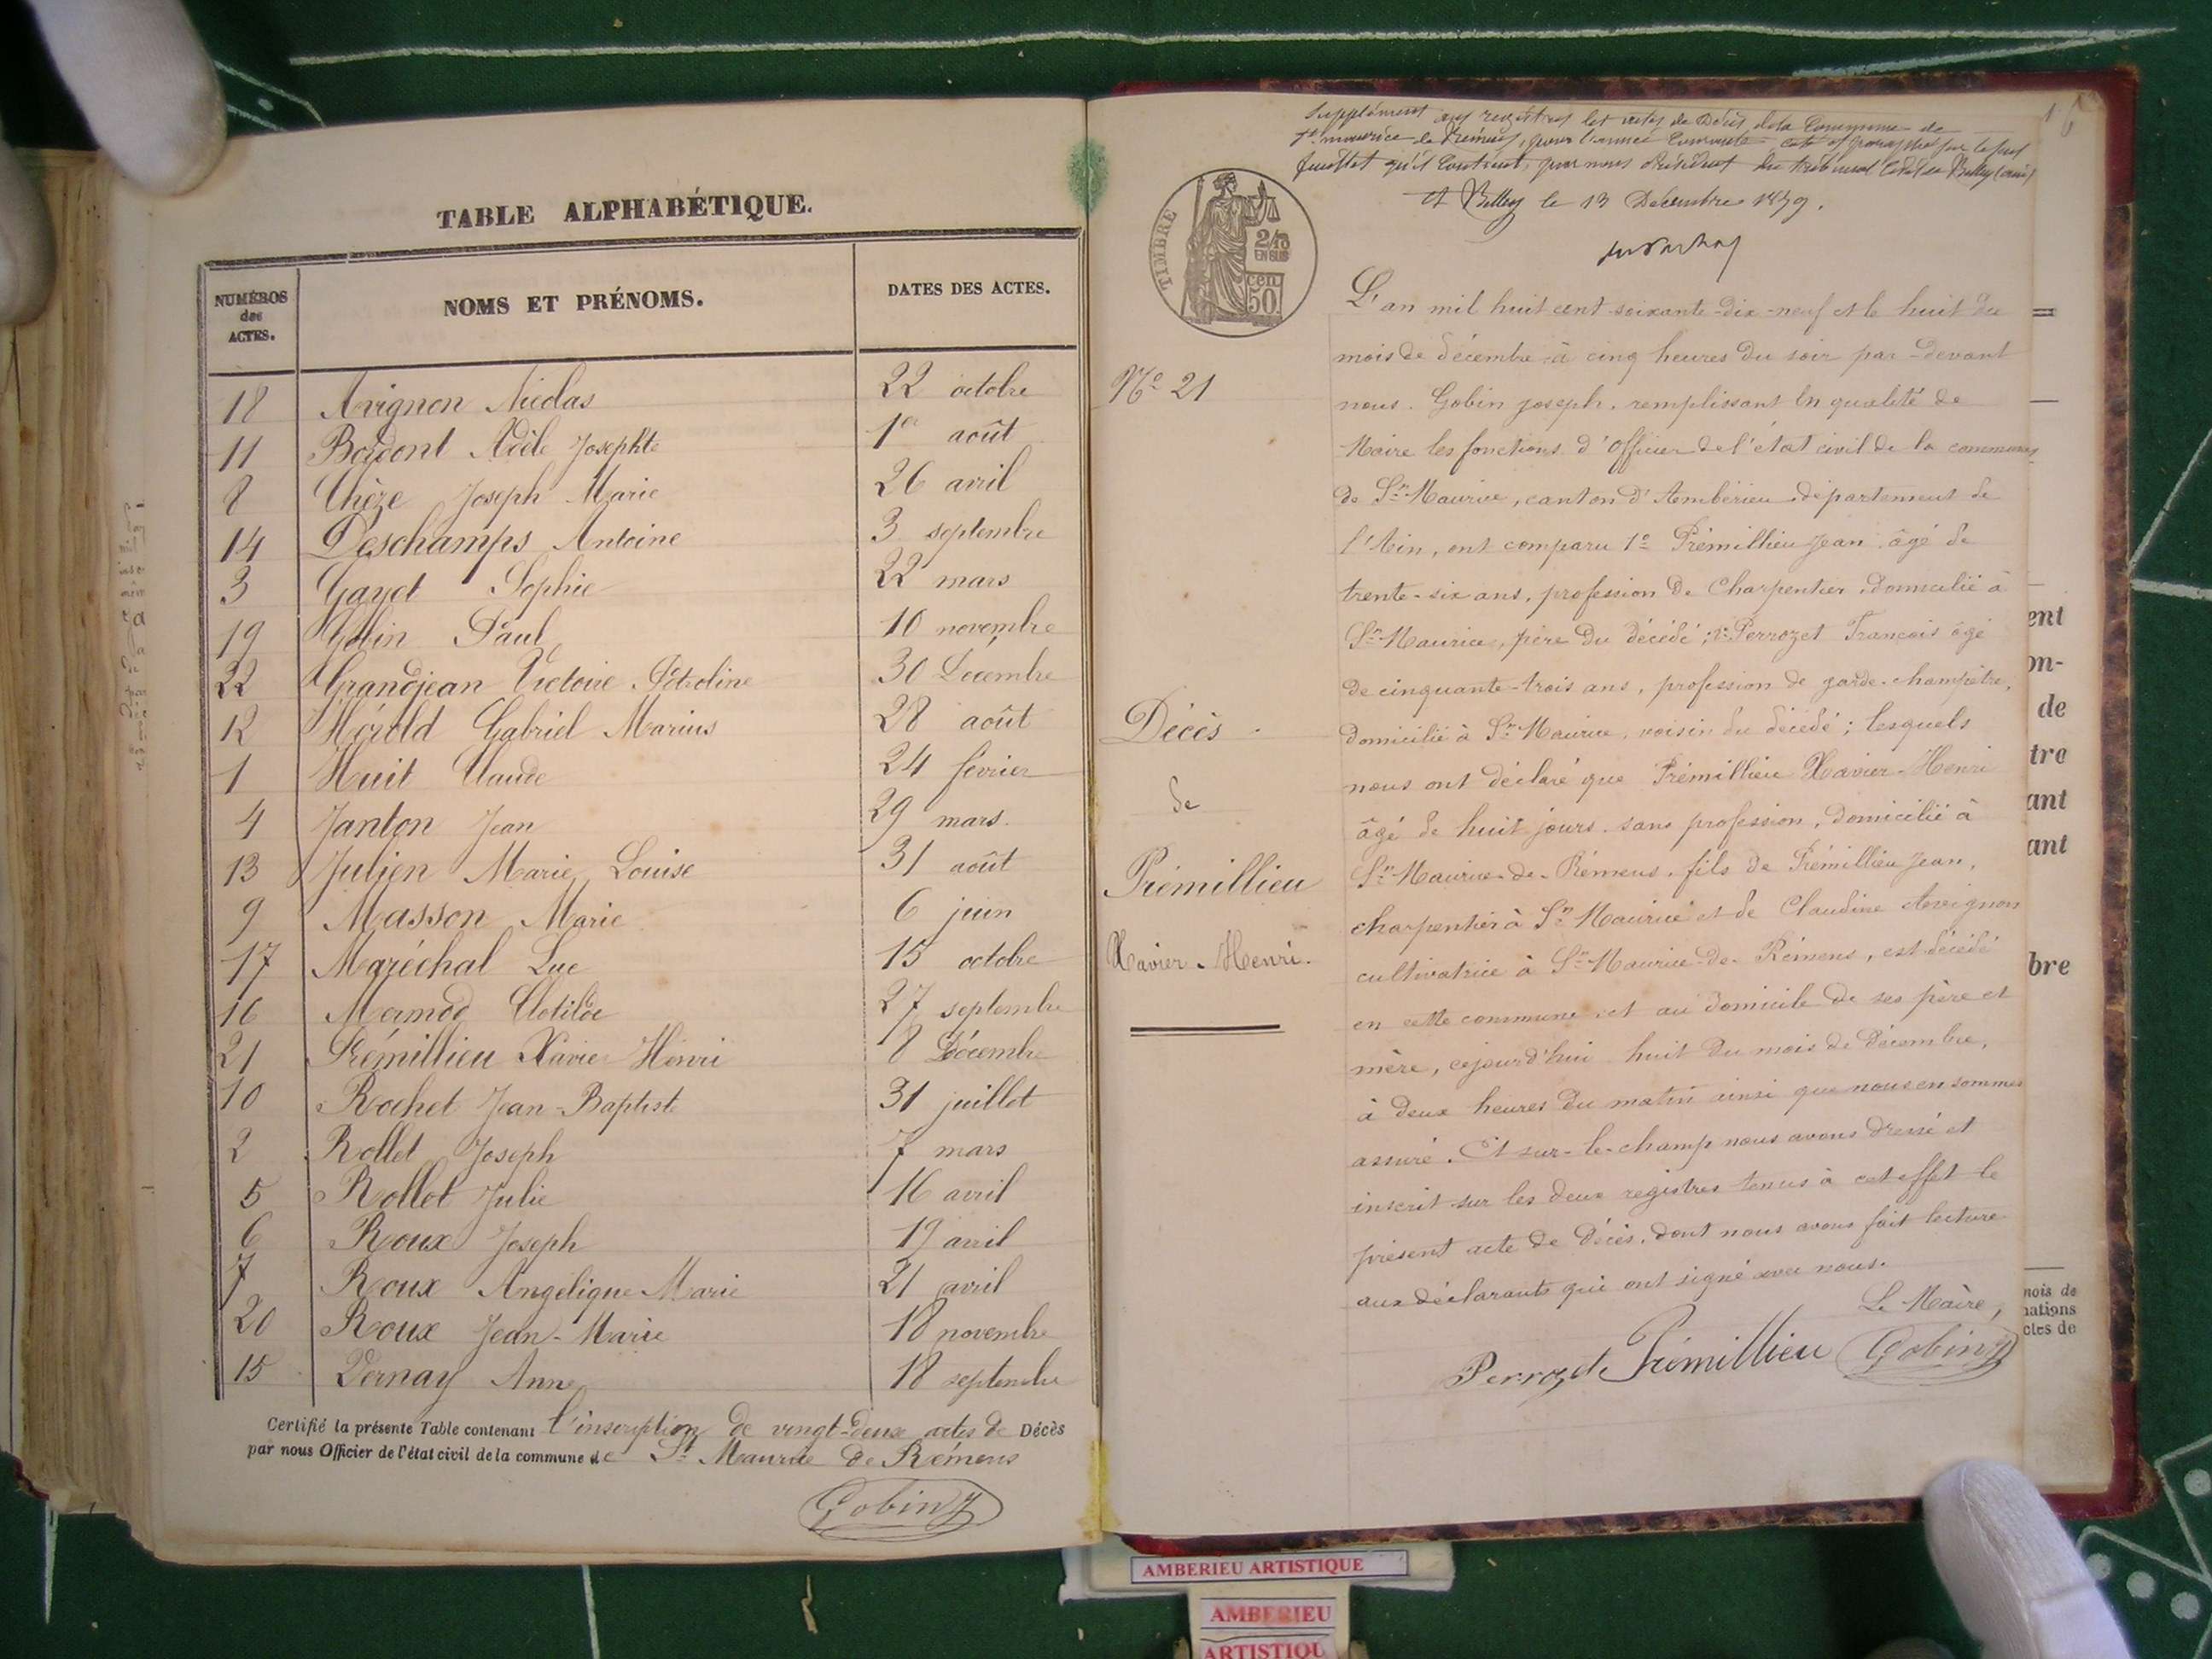 TABLE ALPHABÉTIQUE.
NUMÉROS des ACTES.
NOMS ET PRÉNOMS.
DATES DES ACTES.
18 Avignon Nicolas 22 octobre
11 Adèle Josephte 1er août
8 Chèze Joseph Marie 26 avril
14 Deschamps Antoine 3 septembre
3 Gayet Sophie 22 mars
19 Gobin Paul 10 novembre
22 Grandjean Victoire 30 Décembre
12 Hérold Gabriel Marius 28 août
1 Huit Claude 24 février
4 Janton Jean 29 mars
13 Julien Marie Louise 31 août
9 Masson Marie 6 juin
17 Maréchal Luc 15 octobre
16 Mermod Clotilde 27 septembre
21 Prémillieu Xavier Henri 8 Décembre
10 Rochet Jean-Baptiste 31 juillet
2 Rollet Joseph 7 mars
5 Rollet Julie 16 avril
6 Roux Joseph 19 avril
7 Roux Angélique Marie 21 avril
20 Roux Jean-Marie 18 novembre
15 Vernay Anne 18 septembre
Certifié la présente Table contenant l'inscription de vingt-deux actes de Décès
par nous Officier de l'état civil de la commune de St Maurice de Rémens
Gobin J
Supplément aux registres des actes de Décès de la Commune de
St maurice de Rémens, pour l'année Courante coté et paraphé par
feuillet qu'il Contient, par nous Président du tribunal Civil de Belley (ain)
A Belley le 13 Décembre 1879.
TIMBRE
2/10
EN SUS
cen
50
L'an mil huit cent soixante-dix-neuf et le huit du
mois de décembre à cinq heures du soir par-devant
N° 21
nous. Gobin joseph. remplissant en qualité de
Maire les fonctions d'Officier de l'état civil de la commune
de St-Maurice, canton d'Ambérieu département de
l'Ain, ont comparu 1° Prémillieu Jean âgé de
trente-six ans, profession de Charpentier, domicilié à
St-Maurice, père du décédé; 2° Perrozet François âgé
de cinquante-trois ans, profession de garde-champêtre,
Décès
domicilié à St-Maurice, voisin du décédé; lesquels
nous ont déclaré que Prémillieu Xavier-Henri
de
âgé de huit jours sans profession, domicilié à
Prémillieu
St-Maurice-de-Rémens, fils de Prémillieu Jean,
charpentier à St-Maurice et de Claudine Avignon
Xavier-Henri.
cultivatrice à St-Maurice-de-Rémens, est décédé
en cette commune et au domicile de ses père et
mère, cejourd'hui huit du mois de décembre,
à deux heures du matin ainsi que nous en sommes
assuré. Et sur-le-champ nous avons dressé et
inscrit sur les deux registres tenus à cet effet le
présent acte de décès, dont nous avons fait lecture
aux déclarants qui ont signé avec nous.
Le Maire,
Perrozet Prémillieu Gobin J
ent
on-
de
tre
ant
ant
bre
mois de
nations
ctes de
AMBERIEU ARTISTIQUE
AMBERIEU
ARTISTIQU